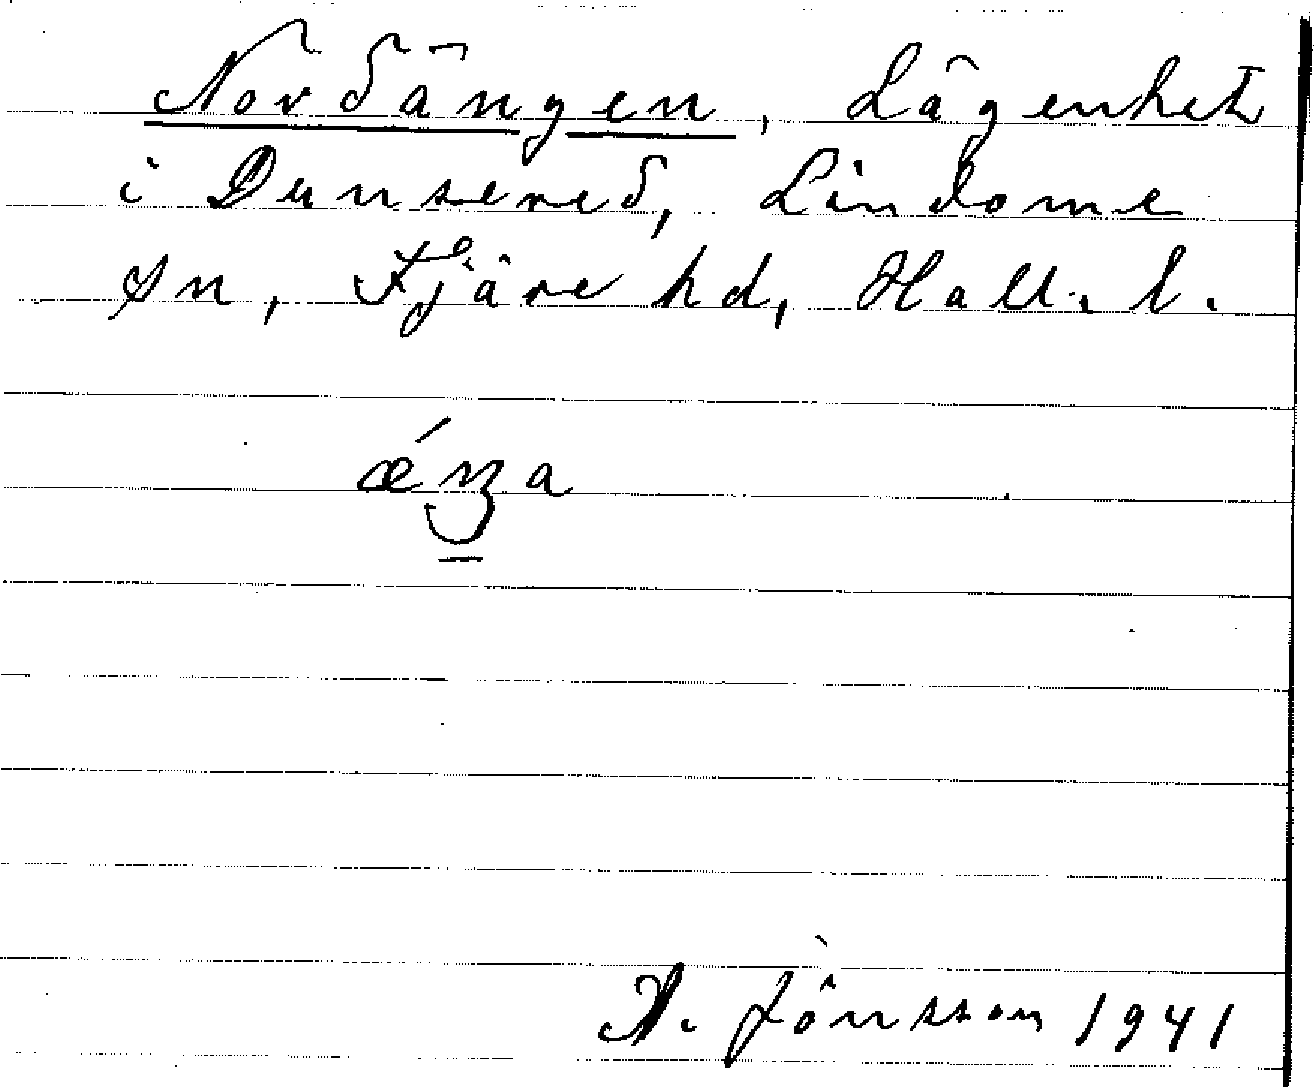 Nordängen, Lägenhet
i Dunsered, Lindome
sn, Fjäre hd, Hall. l.
ǽŋa
A. Jönsson 1941